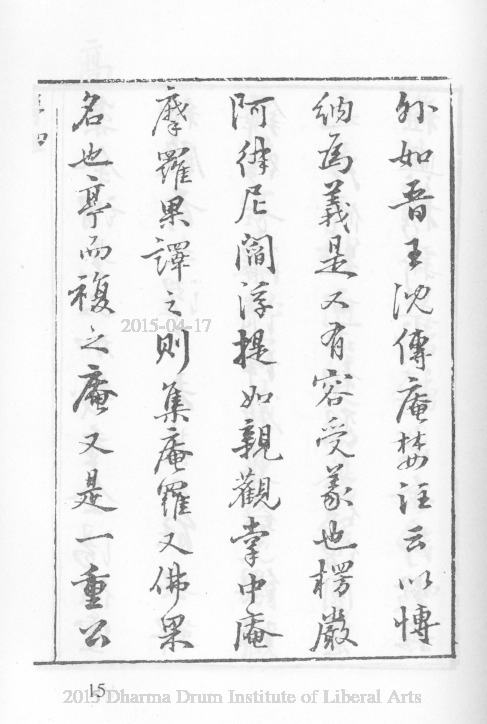 外如晉王沈傳庵婪注云以博
納為義是又有容受義也楞嚴
阿律尼閻浮提如親觀掌中庵
摩羅果譯之則集庵羅又佛果
名也亭而複之庵又是一重公
2015-04-17
15
2015 Dharma Drum Institute of Liberal Arts